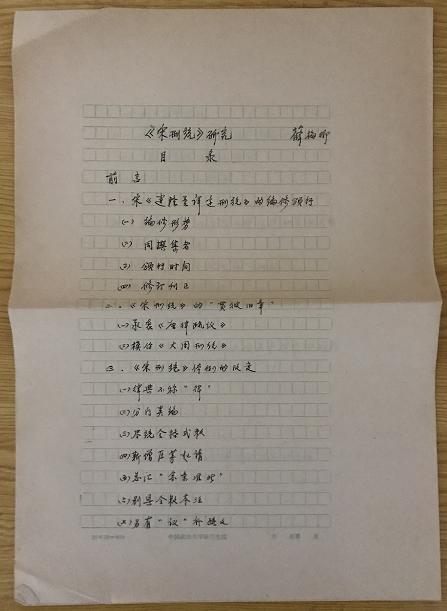 《宋刑统》研究 薛梅卿
目 录
前 言
一、宋《建隆重详定刑统》的编修颁行
㈠ 编修形势
㈡ 同撰集者
㈢ 颁行时间
㈣ 修订刊正
二、《宋刑统》的"贯彼旧章"
㈠承袭《唐律疏议》
㈡模仿《大周刑统》
三、《宋刑统》体例的改定
㈠律典不称"律"
㈡分门类编
㈢尽统令格式敕
㈣新增臣等起请
㈤总汇"余条准此"
㈥别具令敕本注
㈦另有"议"
中国政法大学研究生院